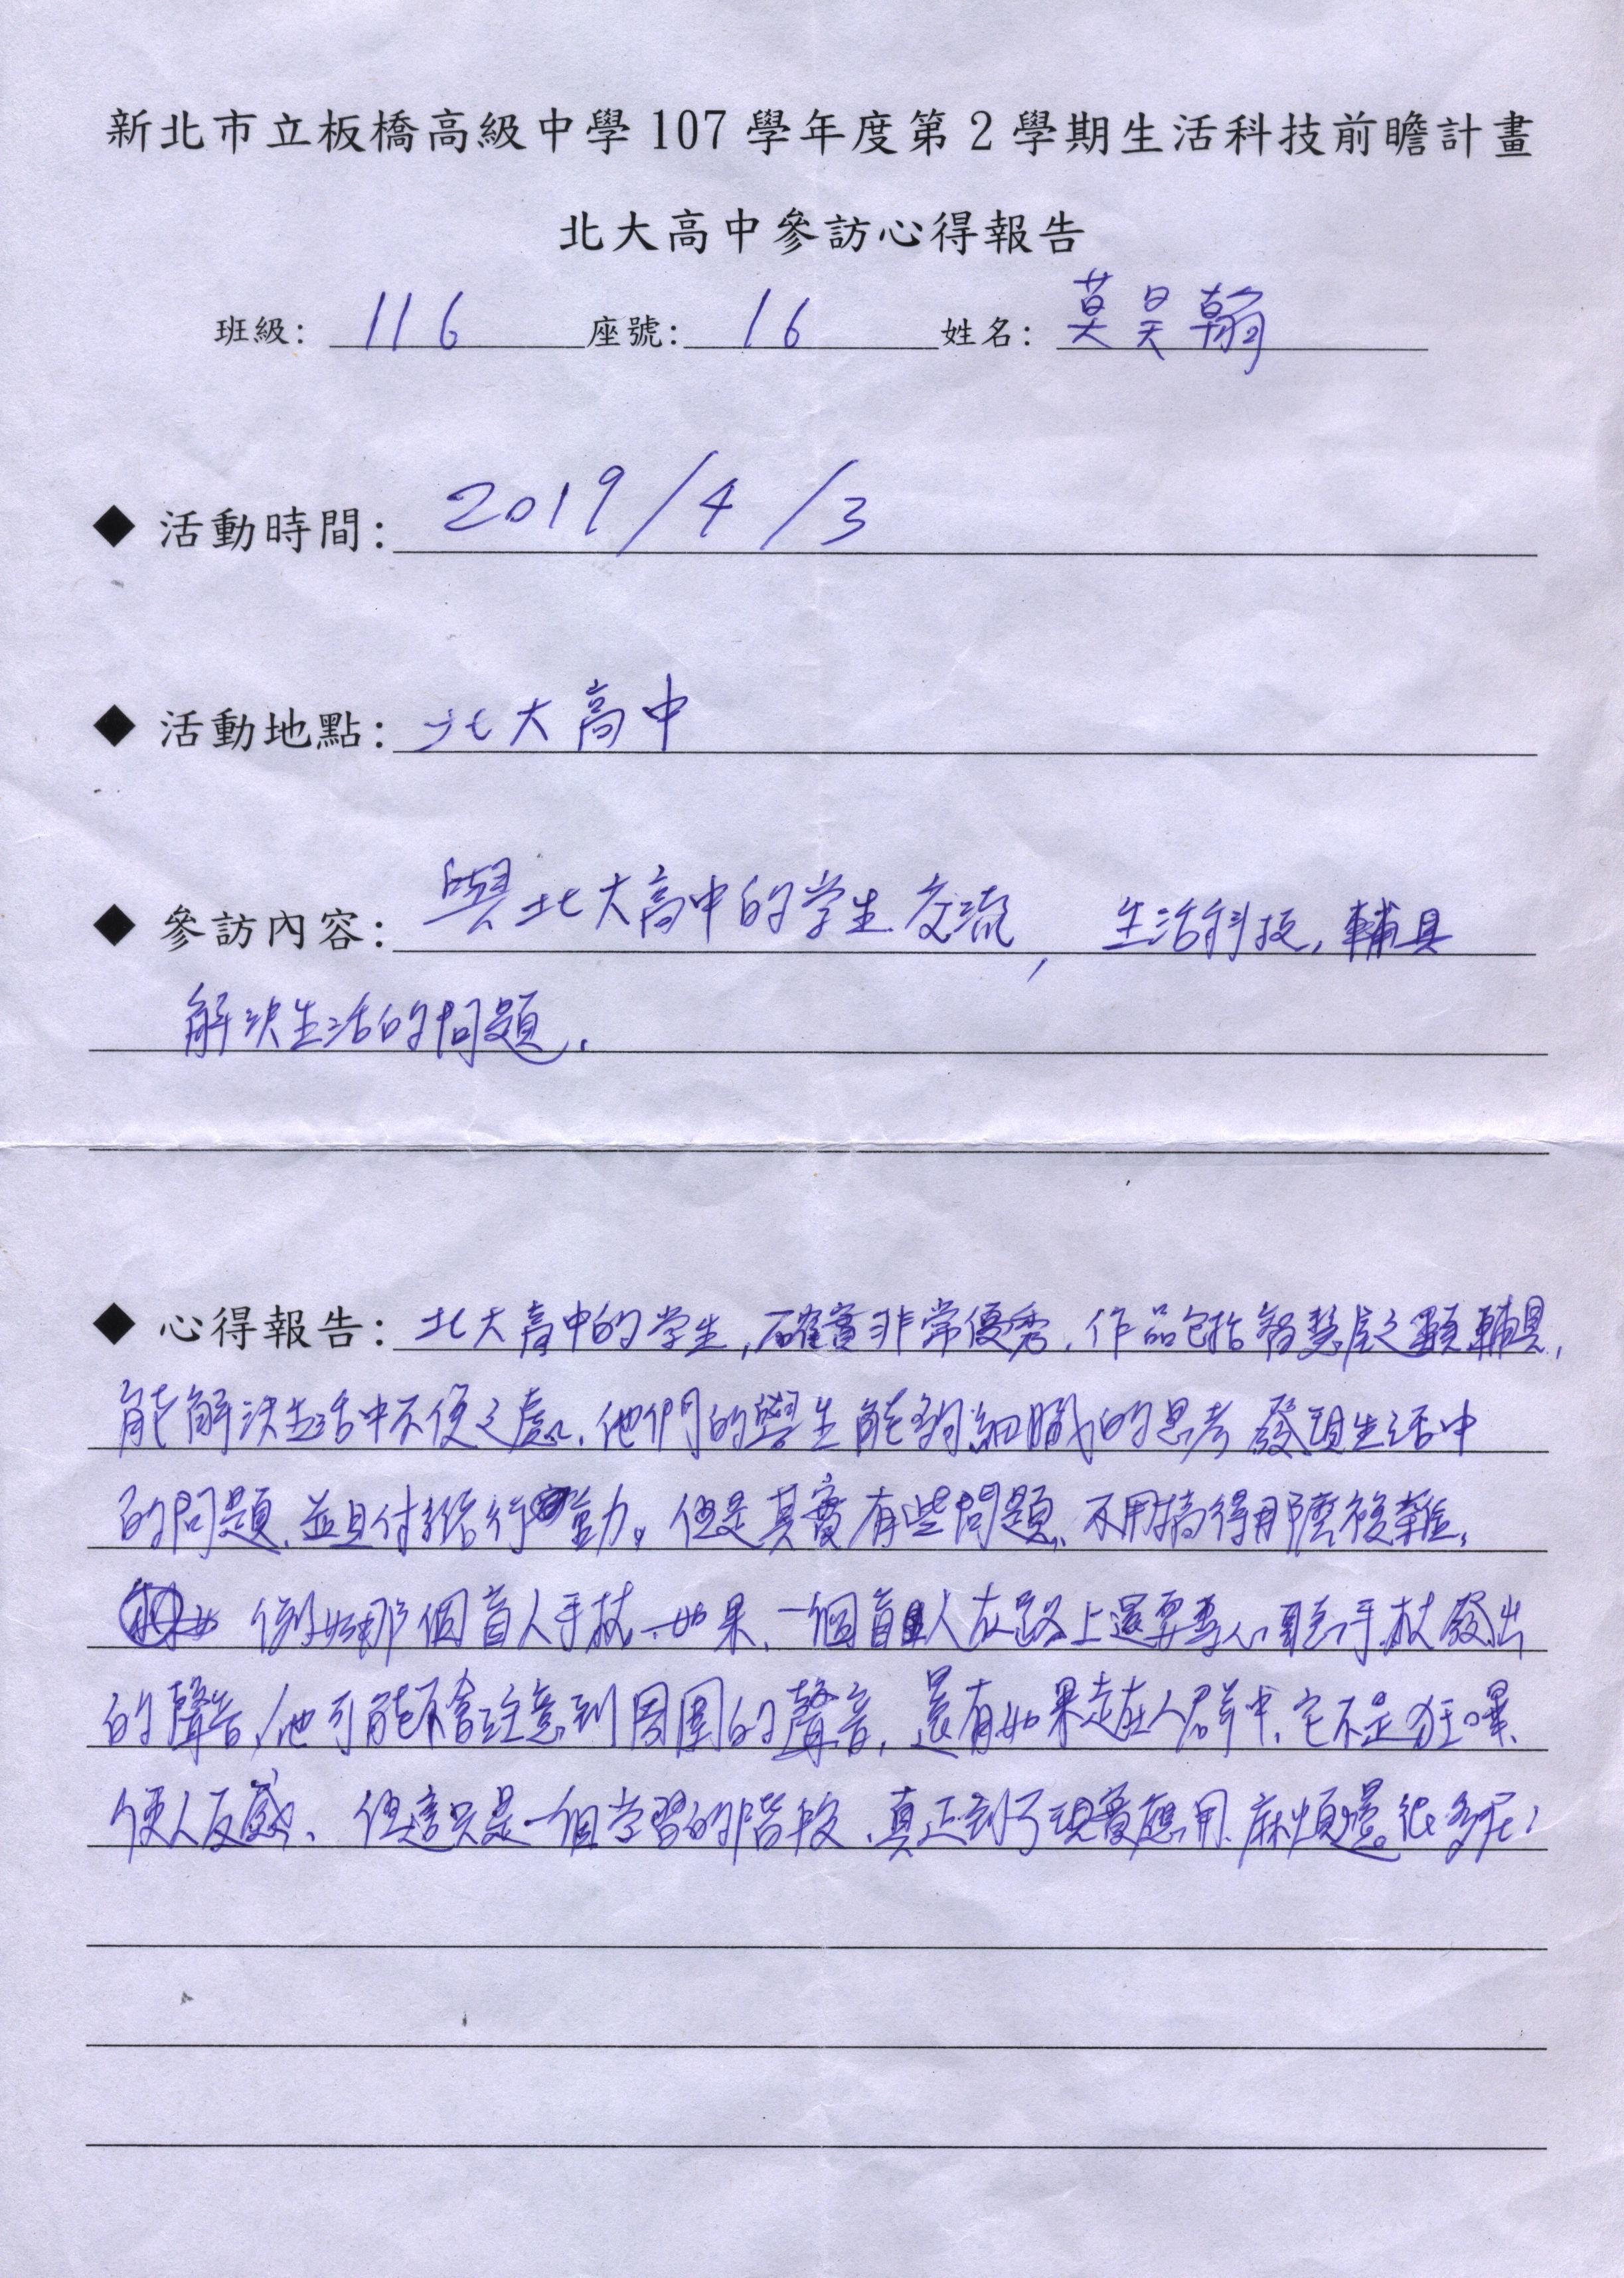 新北市立板橋高級中學 107 學年度第 2 學期生活科技前瞻計畫
北大高中參訪心得報告
班級: 116 座號: 16 姓名: 莫昊翰
◆ 活動時間: 2019/4/3
◆ 活動地點: 北大高中
◆ 參訪內容: 與北大高中的学生交流, 生活科技, 輔具
解決生活的問題.
◆ 心得報告: 北大高中的学生, 確實非常優秀, 作品包括智慧 輔具,
能解決生活中不便之處, 他們的學生能夠細膩的思考 發現生活中
的問題, 並且付諸行動。但是其實有些問題, 不用搞得那麼複雜,
例如那個盲人手杖, 如果, 一個盲人在路上還要專心聽手杖發出
的聲音, 他可能不會注意到周圍的聲音, 還有如果走在人群中, 它不是
使人反感, 但這只是一個学習的階段, 真正到了現實應用, 麻煩還很多